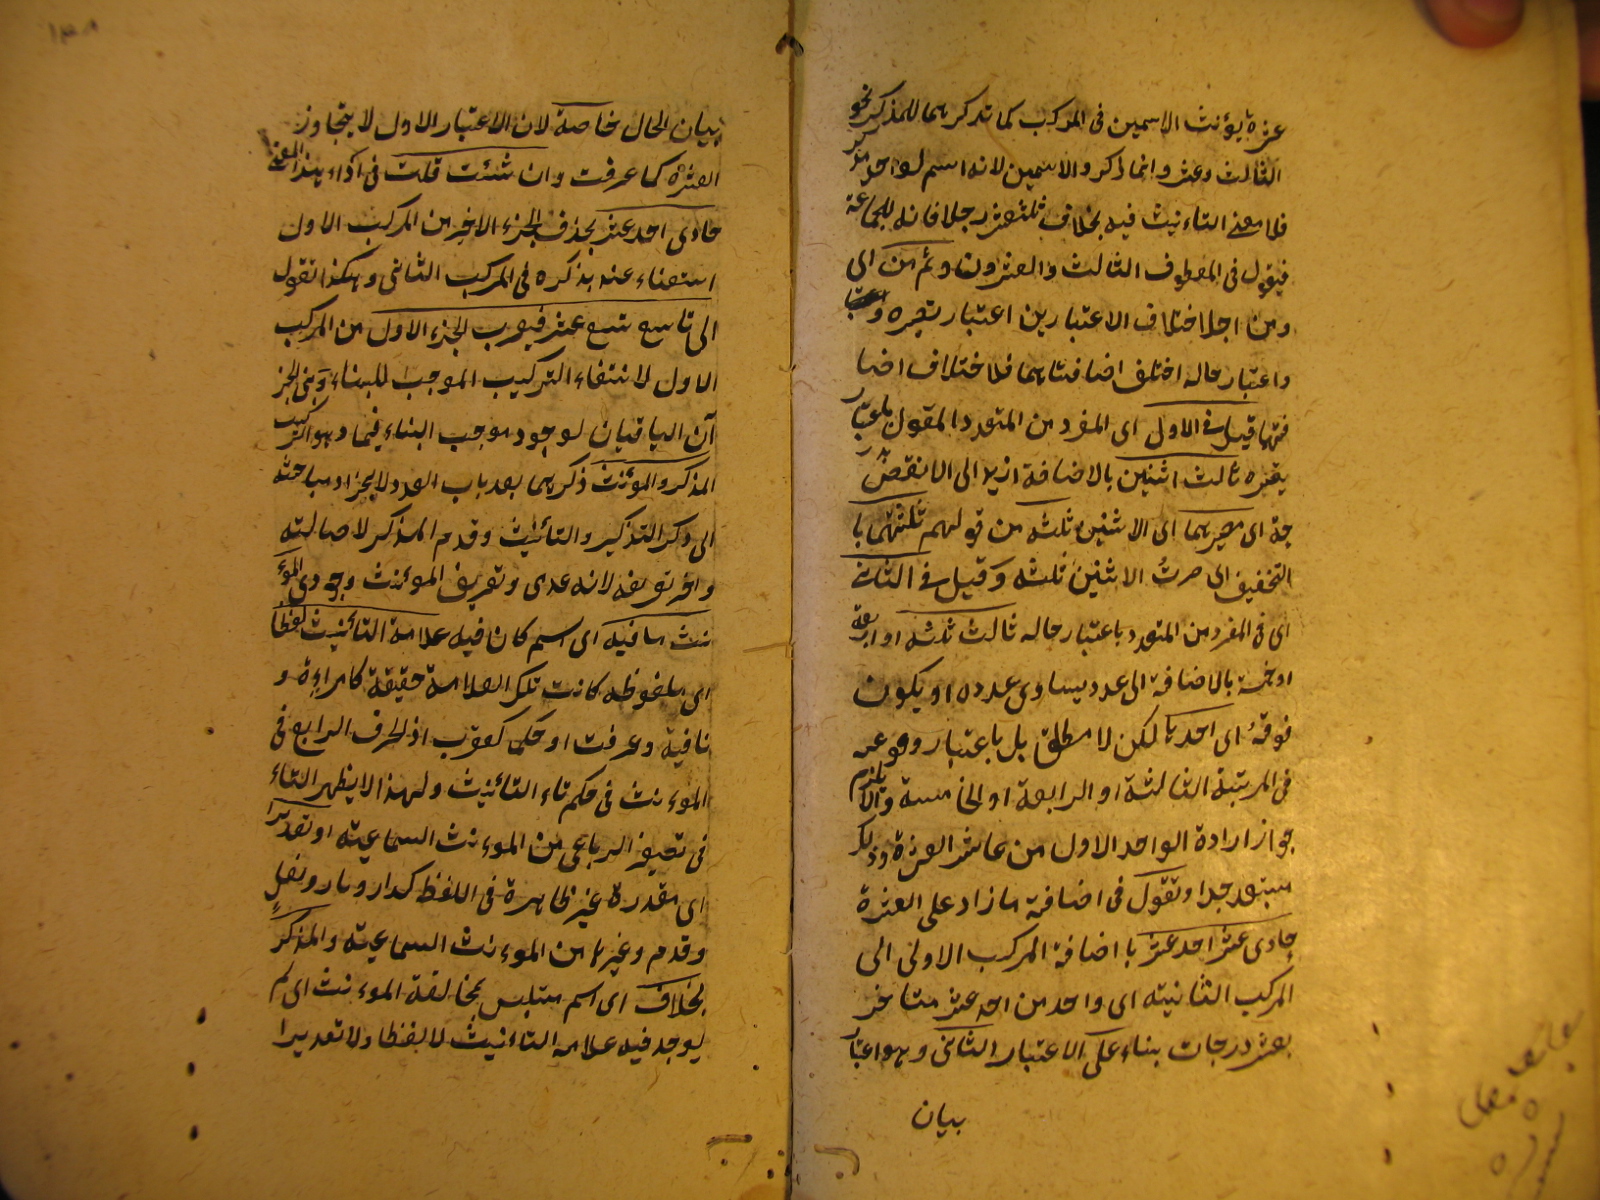 عشرة يؤنث الاسمين في المركب كما تذكرهما للمذكر نحو
الثالث وعشر وانما ذكروا الاسمين لانه اسم لواحد مذكر
فلا معنى التاءنيث فيه بخلاف ثلثة عشر رجلا فانه للجماعة
فيقول في المعطوف الثالث والعشرون ومن ثم اى
ومن اجل اختلاف الاعتبارين اعتبار تصيره و
واعتبار حاله اختلف اضافتاهما فلاختلاف اضا
فتهما قيل في الاول اى المفرد من المتعدد المقول باعتبار
تصيره ثالث اثنين بالاضافة الى الانقص بدر
جة اى مصيرهما اى الاثنين ثلثة من قولهم ثلثتهما با
التخفيف اى صرت الاثنين ثلثة وقيل في الثانى
اى في المفرد من المتعدد باعتبار حاله ثالث ثلثة او اربعة
او خمسة بالاضافة الى عدد يساوى عدده او يكون
فوقه اى احدها لكن لا مطلق بل باعتبار وقوعه
في المرتبة الثالثة او الرابعة او الخامسة والا يلزم
جواز ارادة الواحد الاول من عاشر العشرة وذلك
مستبعد جدا وتقول في اضافة ما زاد على العشرة
حادى عشر احد عشر باضافة المركب الاولى الى
المركب الثانية اى واحد من احد عشر متاخر
بعشر درجات بناء على الاعتبار الثانى وهو اعتبار
بيان
١٣٨
بيان الحال خاصة لان الاعتبار الاول لا يتجاوز
العشرة كما عرفت وان شئت قلت في اداء هذا المعنى
حادى احد عشر بحذف الجزء الاخير من المركب الاول
استغناء عنه بذكره في المركب الثانى وهكذا تقول
الى تاسع تسع عشر فيعرب الجزء الاول من المركب
الاول لانتفاء التركيب الموجب للبناء وبنى الجز
آن الباقيان لوجود موجب البناء فيهما وهو التركيب
المذكر والمؤنث ذكرهما بعد باب العدد لانجرار مباحثه
الى ذكر التذكير والتأنيث وقدم المذكر لاصالته
واخر تعريفه لانه عدمى وتعريف الموءنث وجودى الموء
نث ما فيه اى اسم كان فيه علامة التأنيث لفظا
اى ملفوظه كانت تلك العلامة حقيقة كامراءة و
ناقة وغرفت او حكما كعقرب اذ الحرف الرابع في
الموءنث في حكم تاء التأنيث ولهذا لا يظهر التاء
في تصغير الرباعى من الموءنث السماعية او تقديرا
اى مقدرة غير ظاهرة في اللفظ كدار ونار ونعل
وقدم وغيرها من الموءنث السماعية والمذكر
بخلافه اى اسم متلبس بمخالفة الموءنث اى لم
يوجد فيه علامة التاءنيث لا لفظا ولا تقديرا